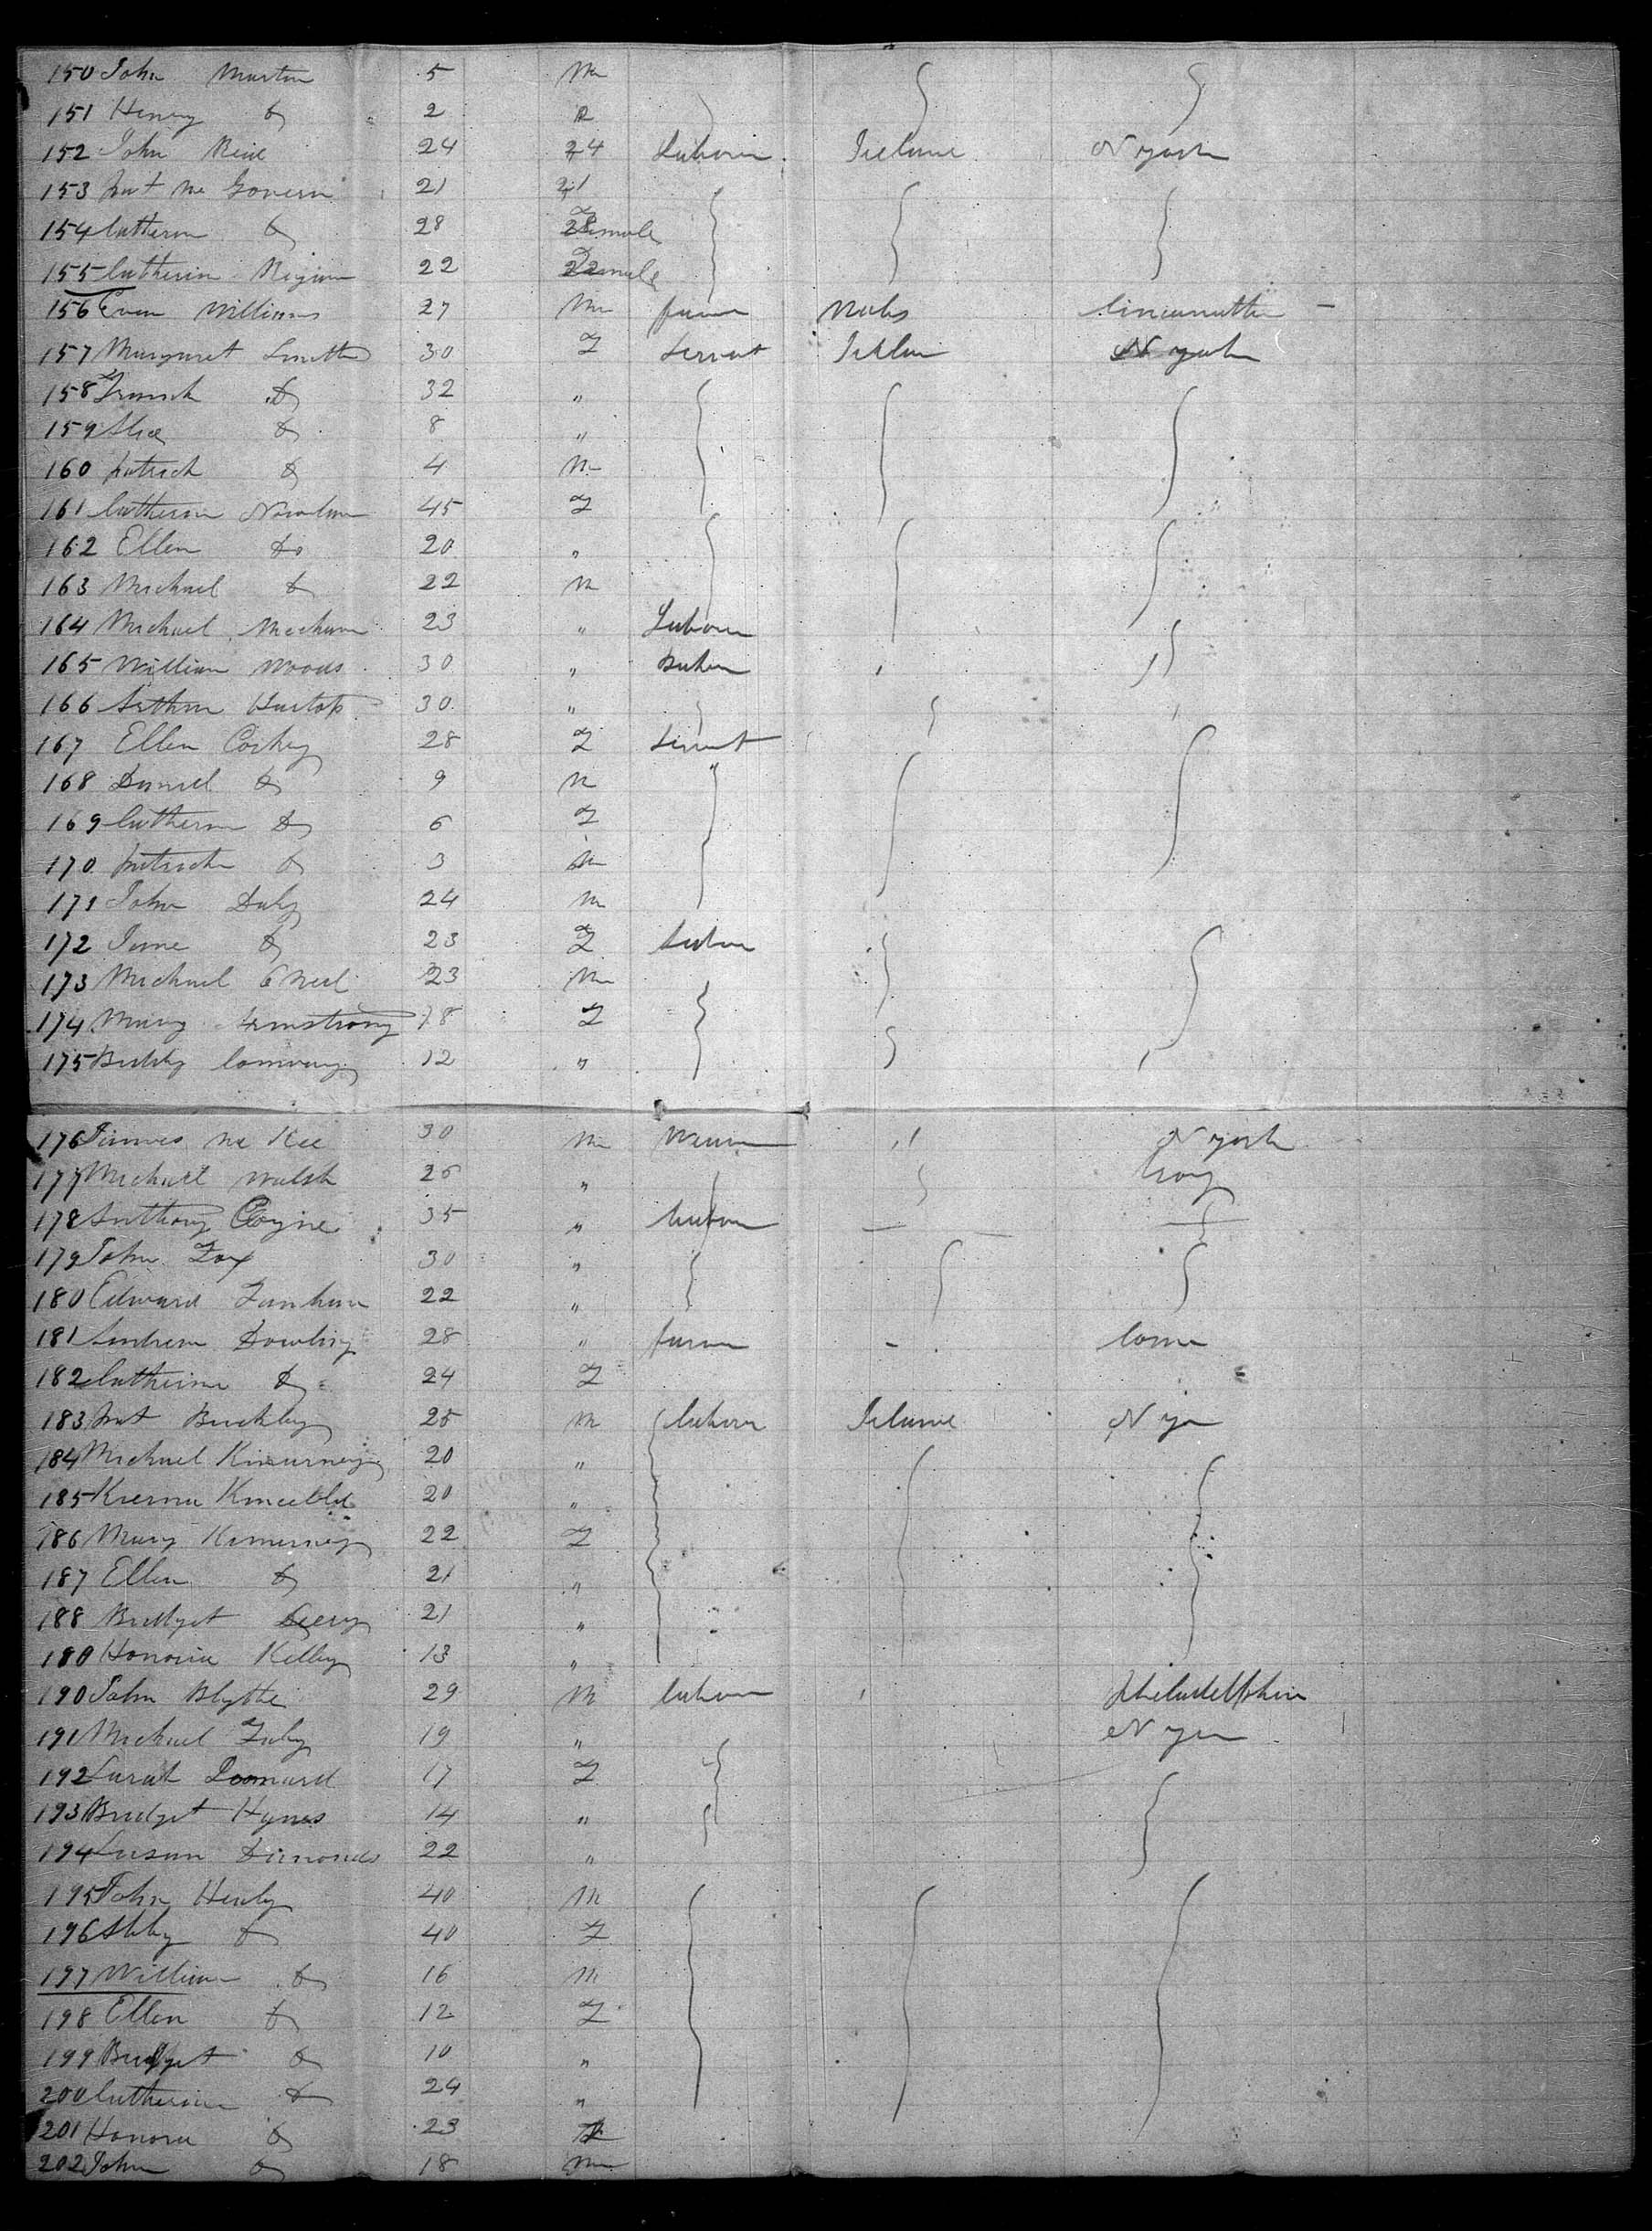 150 John Martin 5 M
151 Henry Do 2
152 John 24 24 Labourer Ireland N York
153 Pat Mc Govern 21 21
154 Catherine Do 28 Female
155 Catherine 22 Female
156 Evan Williams 27 M farmer Wales Cincinnatti
157 Margaret Smith 30 F Servant Ireland N York
158 Do 32 "
159 Alice Do 8 "
160 Patrick Do 4 M
161 Catherine 45 F
162 Ellen Do 20 "
163 Michael Do 22 M
164 Michael Meehan 23 " Labourer
165 William Woods 30 " Baker
166 Arthur Hartop 30 "
167 Ellen Corkey 28 F Servant
168 Daniel Do 9 M
169 Catherine Do 6 F
170 Patrick Do 3 M
171 John Daly 24 M
172 Jane Do 23 F Labour
173 Michael O Neil 23 M
174 Mary Armstrong 18 F
175 Conway 12 "
176 James Mc Kee 30 M Weaver N York
177 Michael Walsh 26 " Troy
178 Anthony Coyne 35 " Labour
179 John Fox 30 "
180 Edward 22 "
181 Andrew Dowling 28 " farmer
182 Catherine Do 24 F
183 Pat Buckley 25 M labour Ireland N Y
184 Michael 20 "
185 20 "
186 Mary 22 F
187 Ellen Do 21 "
188 Bridget 21 "
180 Honoria Kelly 13 "
190 John Blythe 29 M labour Philadelphia
191 Michael Faby 19 " N Y
192 Sarah 17 F
193 Bridget Hynes 14 "
194 Susan Dimonds 22 "
195 John Henly 40 M
196 Abby Do 40 F
197 William Do 16 M
198 Ellen Do 12 F
199 Bridget Do 10 "
200 Catherine Do 24 "
201 Honora Do 23 F
202 John Do 18 M